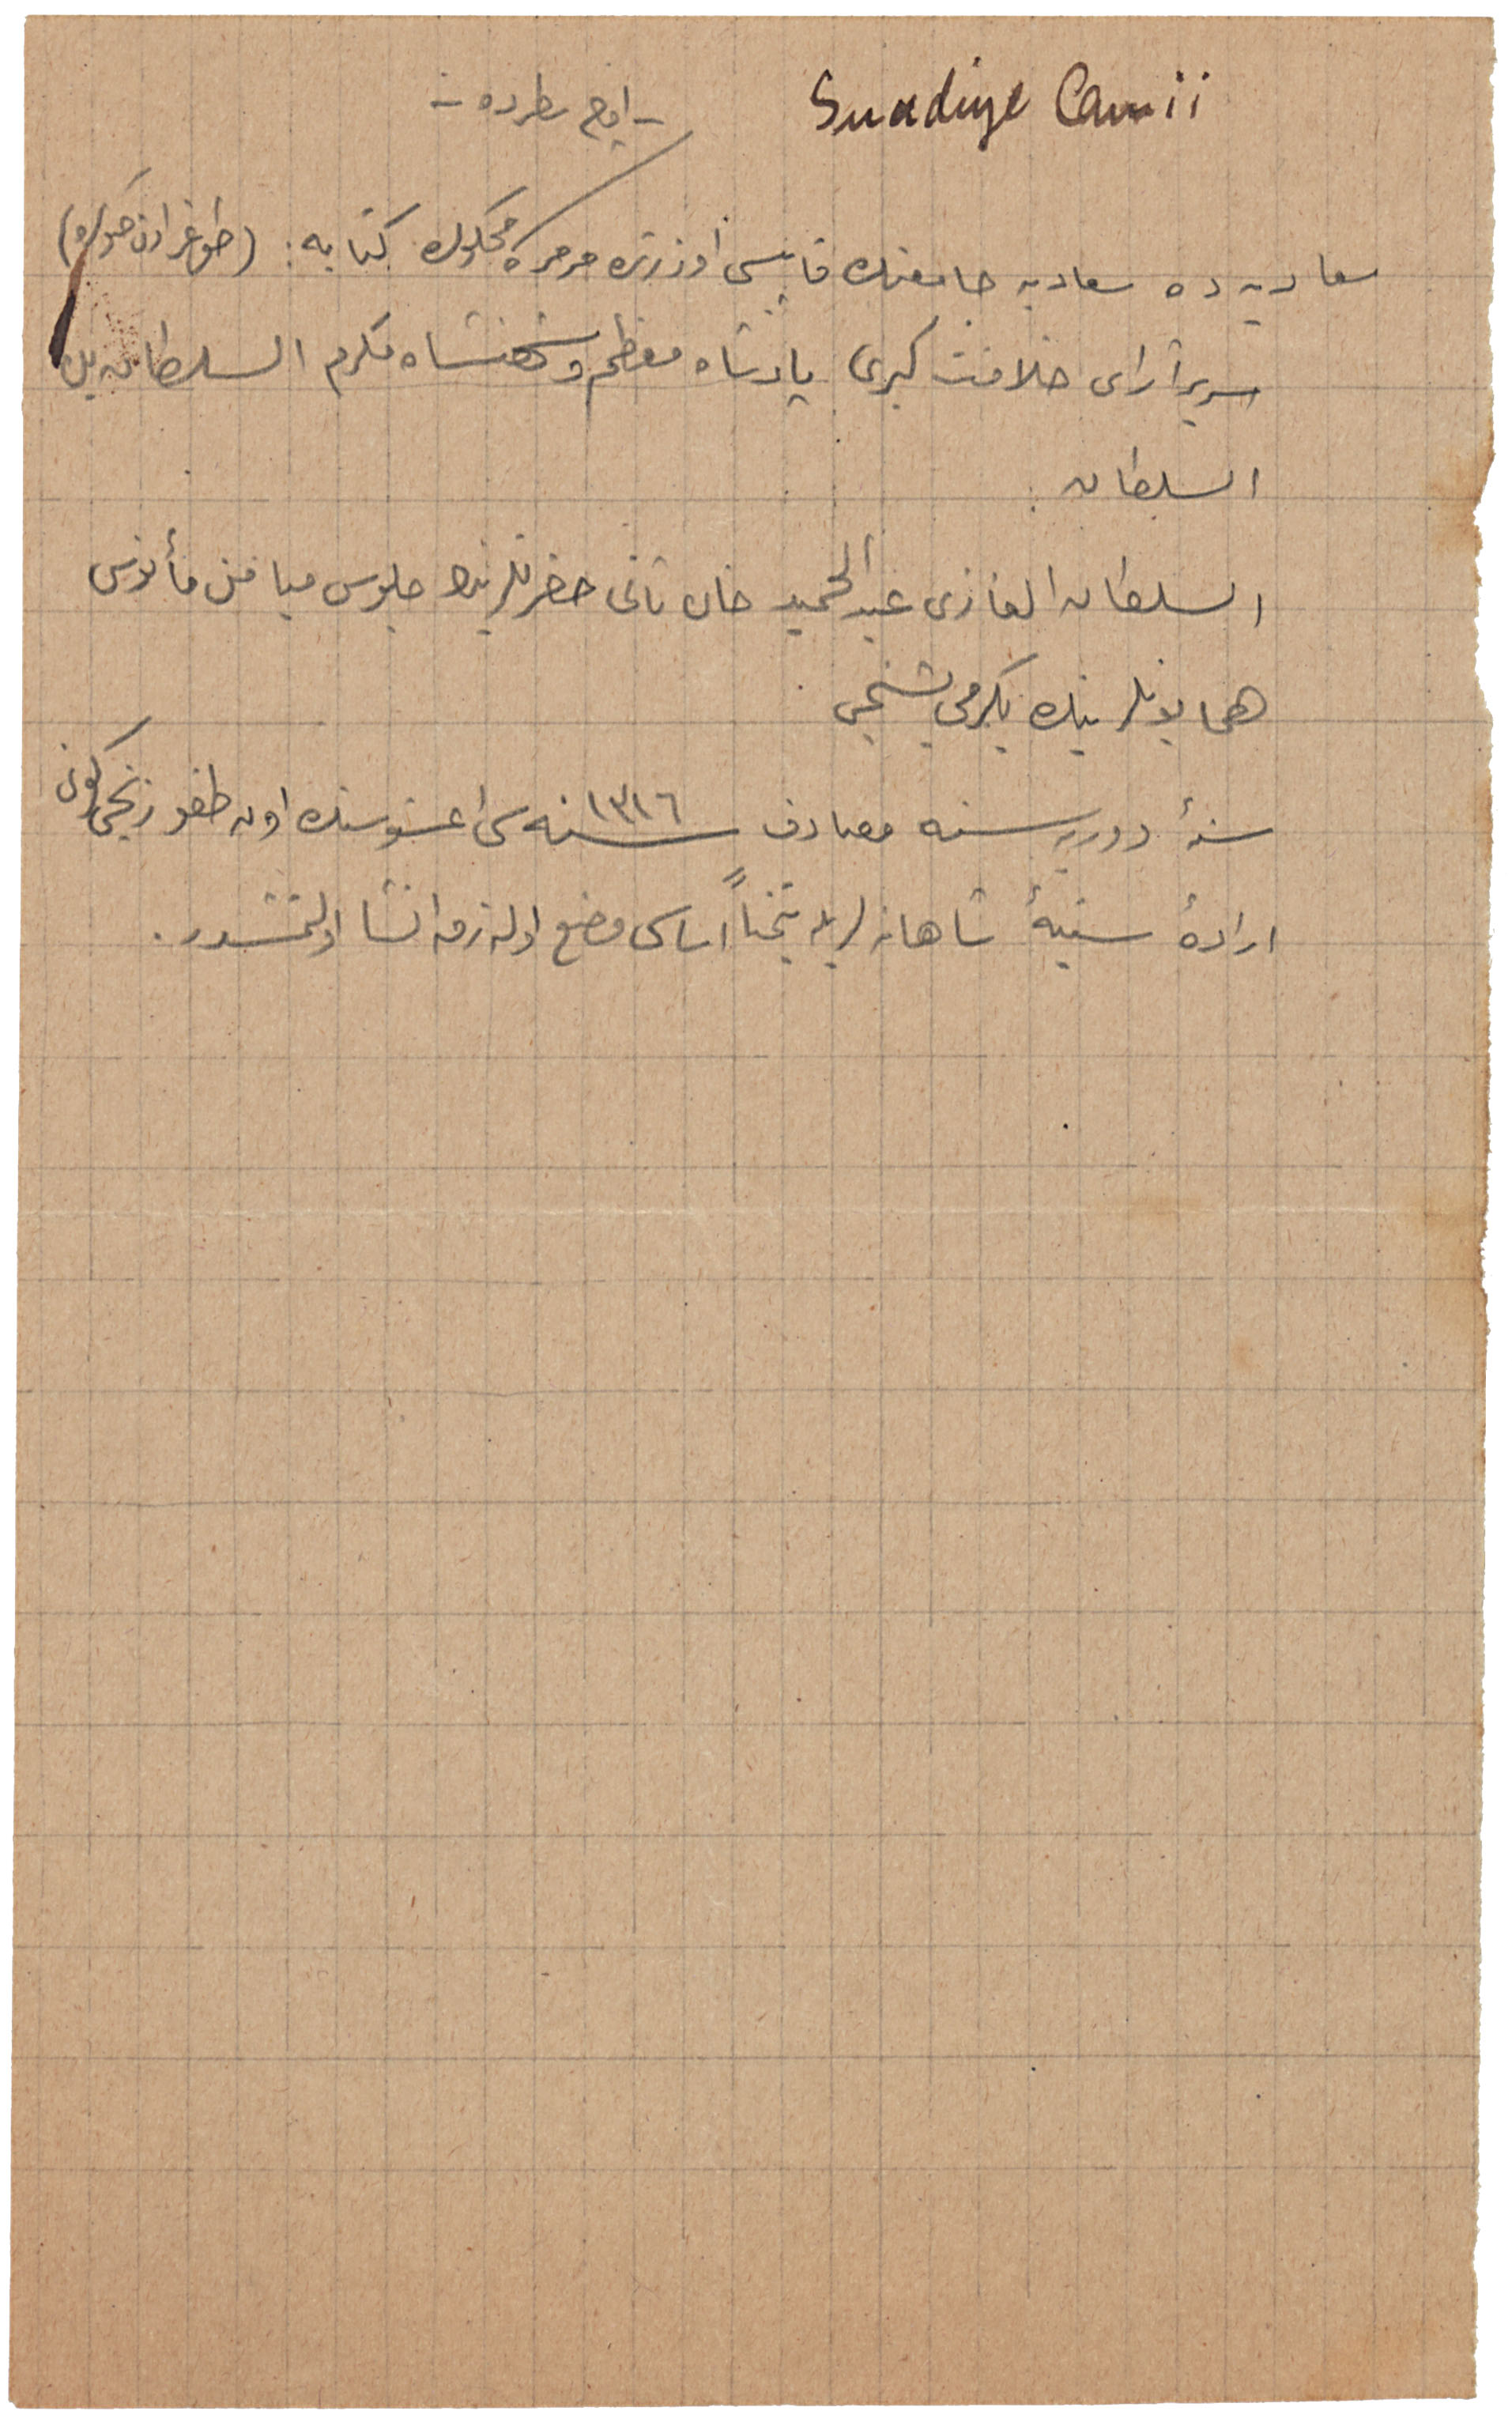 Suadiye Camii
- اوچ سطرده -
سعاديه ده سعاديه جامعنك قاپيسى اوزرنده مرمره محكوك كتابه : (طوغرادن طوغرويه)
سرير آراى خلافت كبرى پادشاه معظم و شهنشاه مكرم السلطان بن
السلطان
السلطان الغازى عبدالحميد خان ثانى حضرتلرينك جلوس ميامن مأنوس
همايونلرينك يكرمى بشنجى
سنهٔ دوريه سنه مصادف ١٣١٦ سنه سى اغستوسنك اون طقوزنجى كونى
ارادهٔ سنيهٔ شاهانه لريله تيمناً اساسى وضع اولنه رق انشا اولنمشدر .